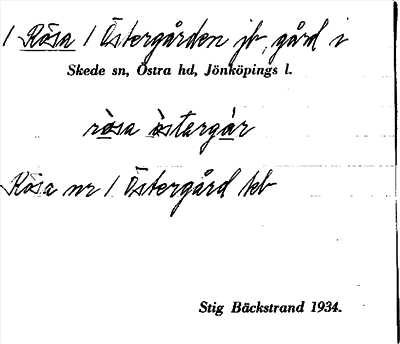 1 Rösa 1 Östergården jb, gård i
Skede sn, Östra hd, Jönköpings l.
rò̱sa ò̱stargà̱r
Rösa nr 1 Östergård
Stig Bäckstrand 1934.